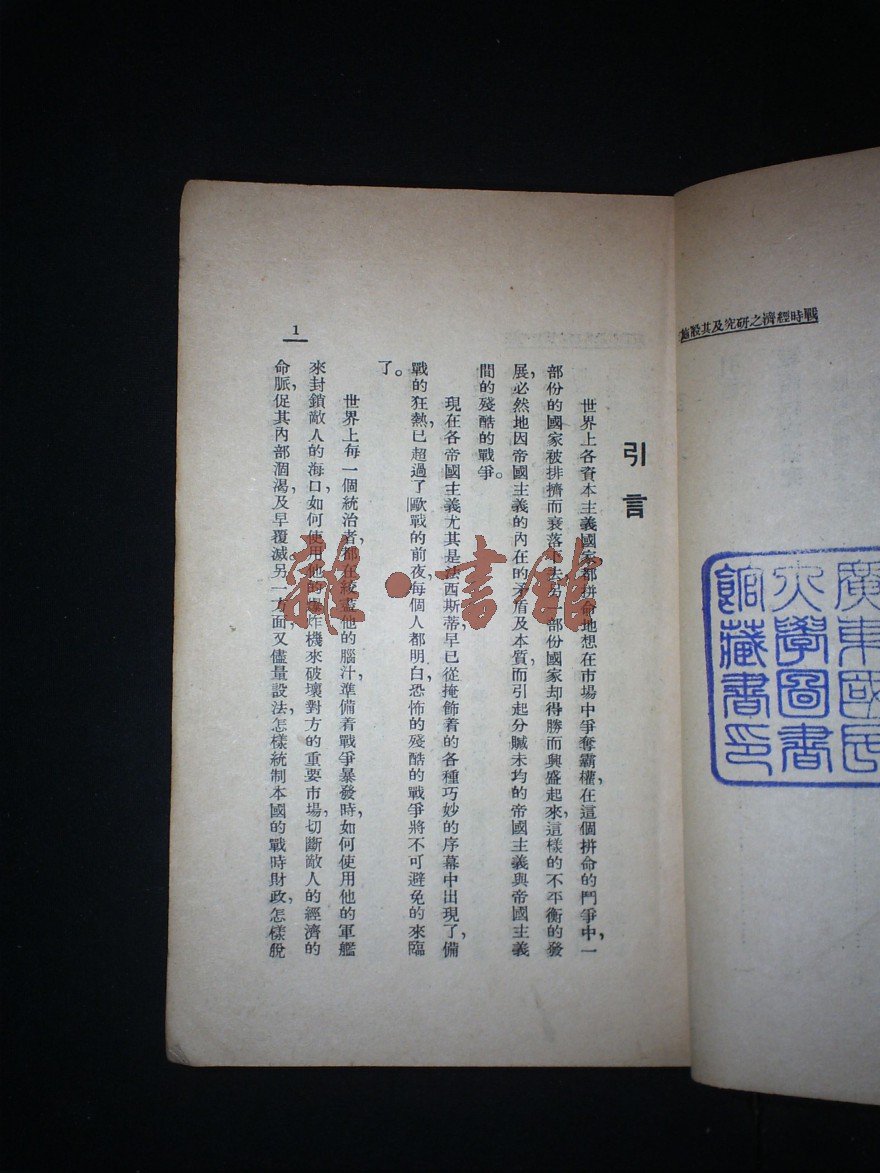 戰時經濟之研究及其設施
廣東國民
大學圖書
館藏書印
引言
世界上各資本主義國家都拼命地想在市場中爭奪霸權，在這個拼命的鬥爭中，一
部份的國家被排擠而衰落下去，另一部份國家却得勝而興盛起來，這樣的不平衡的發
展，必然地因帝國主義的內在的矛盾及本質而引起分贓未均的帝國主義與帝國主義
間的殘酷的戰爭。
現在各帝國主義尤其是法西斯蒂，早已從掩飾着的各種巧妙的序幕中出現了，備
戰的狂熱，已超過了歐戰的前夜，每個人都明白，恐怖的殘酷的戰爭將不可避免的來臨
了。
世界上每一個統治者，都在絞盡他的腦汁，準備着戰爭暴發時，如何使用他的軍艦
來封鎖敵人的海口，如何使用他的爆炸機來破壞對方的重要市場，切斷敵人的經濟的
命脈，促其內部涸渴，及早覆滅。另一方面，又儘量設法，怎樣統制本國的戰時財政，怎樣脫
1
雜·書館